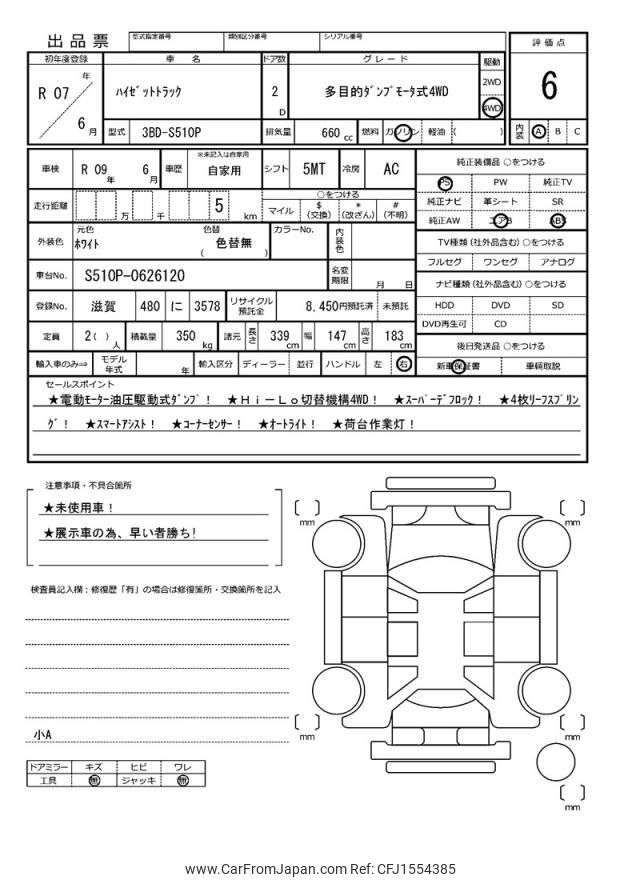 出品票 型式指定番号 類別区分番号 シリアル番号 評価点
初年度登録 車名 ドア数 グレード 駆動
R 07 年 6 月 ハイゼットトラック 2 D 多目的ダンプモータ式4WD 2WD 4WD 6
型式 3BD-S510P 排気量 660 cc 燃料 ガソリン 軽油 ( ) 内装 A B C
車検 R 09 年 6 月 車歴 ※未記入は自家用 自家用 シフト 5MT 冷房 AC 純正装備品 ○をつける
PS PW 純正TV
走行距離 万 千 5 km ○をつける マイル $ (交換) * (改ざん) # (不明)
純正ナビ 革シート SR
純正AW エアB ABS
外装色 元色 ホワイト 色替 ( 色替無 ) カラーNo. 内装色
TV種類 (社外品含む) ○をつける
フルセグ ワンセグ アナログ
車台No. S510P-0626120 名変期限 月 日
ナビ種類 (社外品含む) ○をつける
登録No. 滋賀 480 に 3578 リサイクル預託金 8,450円預託済 未預託
HDD DVD SD
DVD再生可 CD
定員 2( ) 人 積載量 350 kg 諸元 長さ 339 cm 幅 147 cm 高さ 183 cm
後日発送品 ○をつける
輸入車のみ⇒ モデル年式 年 輸入区分 ディーラー 並行 ハンドル 左 右
新車保証書 車輌取説
セールスポイント
★電動モーター油圧駆動式ダンプ！ ★Hi-Lo切替機構4WD！ ★スーパーデフロック！ ★4枚リーフスプリン
グ！ ★スマートアシスト！ ★コーナーセンサー！ ★オートライト！ ★荷台作業灯！
注意事項・不具合箇所
★未使用車！
★展示車の為、早い者勝ち!
検査員記入欄：修復歴「有」の場合は修復箇所・交換箇所を記入
小A
ドアミラー キズ ヒビ ワレ
工具 無 ジャッキ 無
mm
mm
mm
mm
mm
www.CarFromJapan.com Ref: CFJ1554385